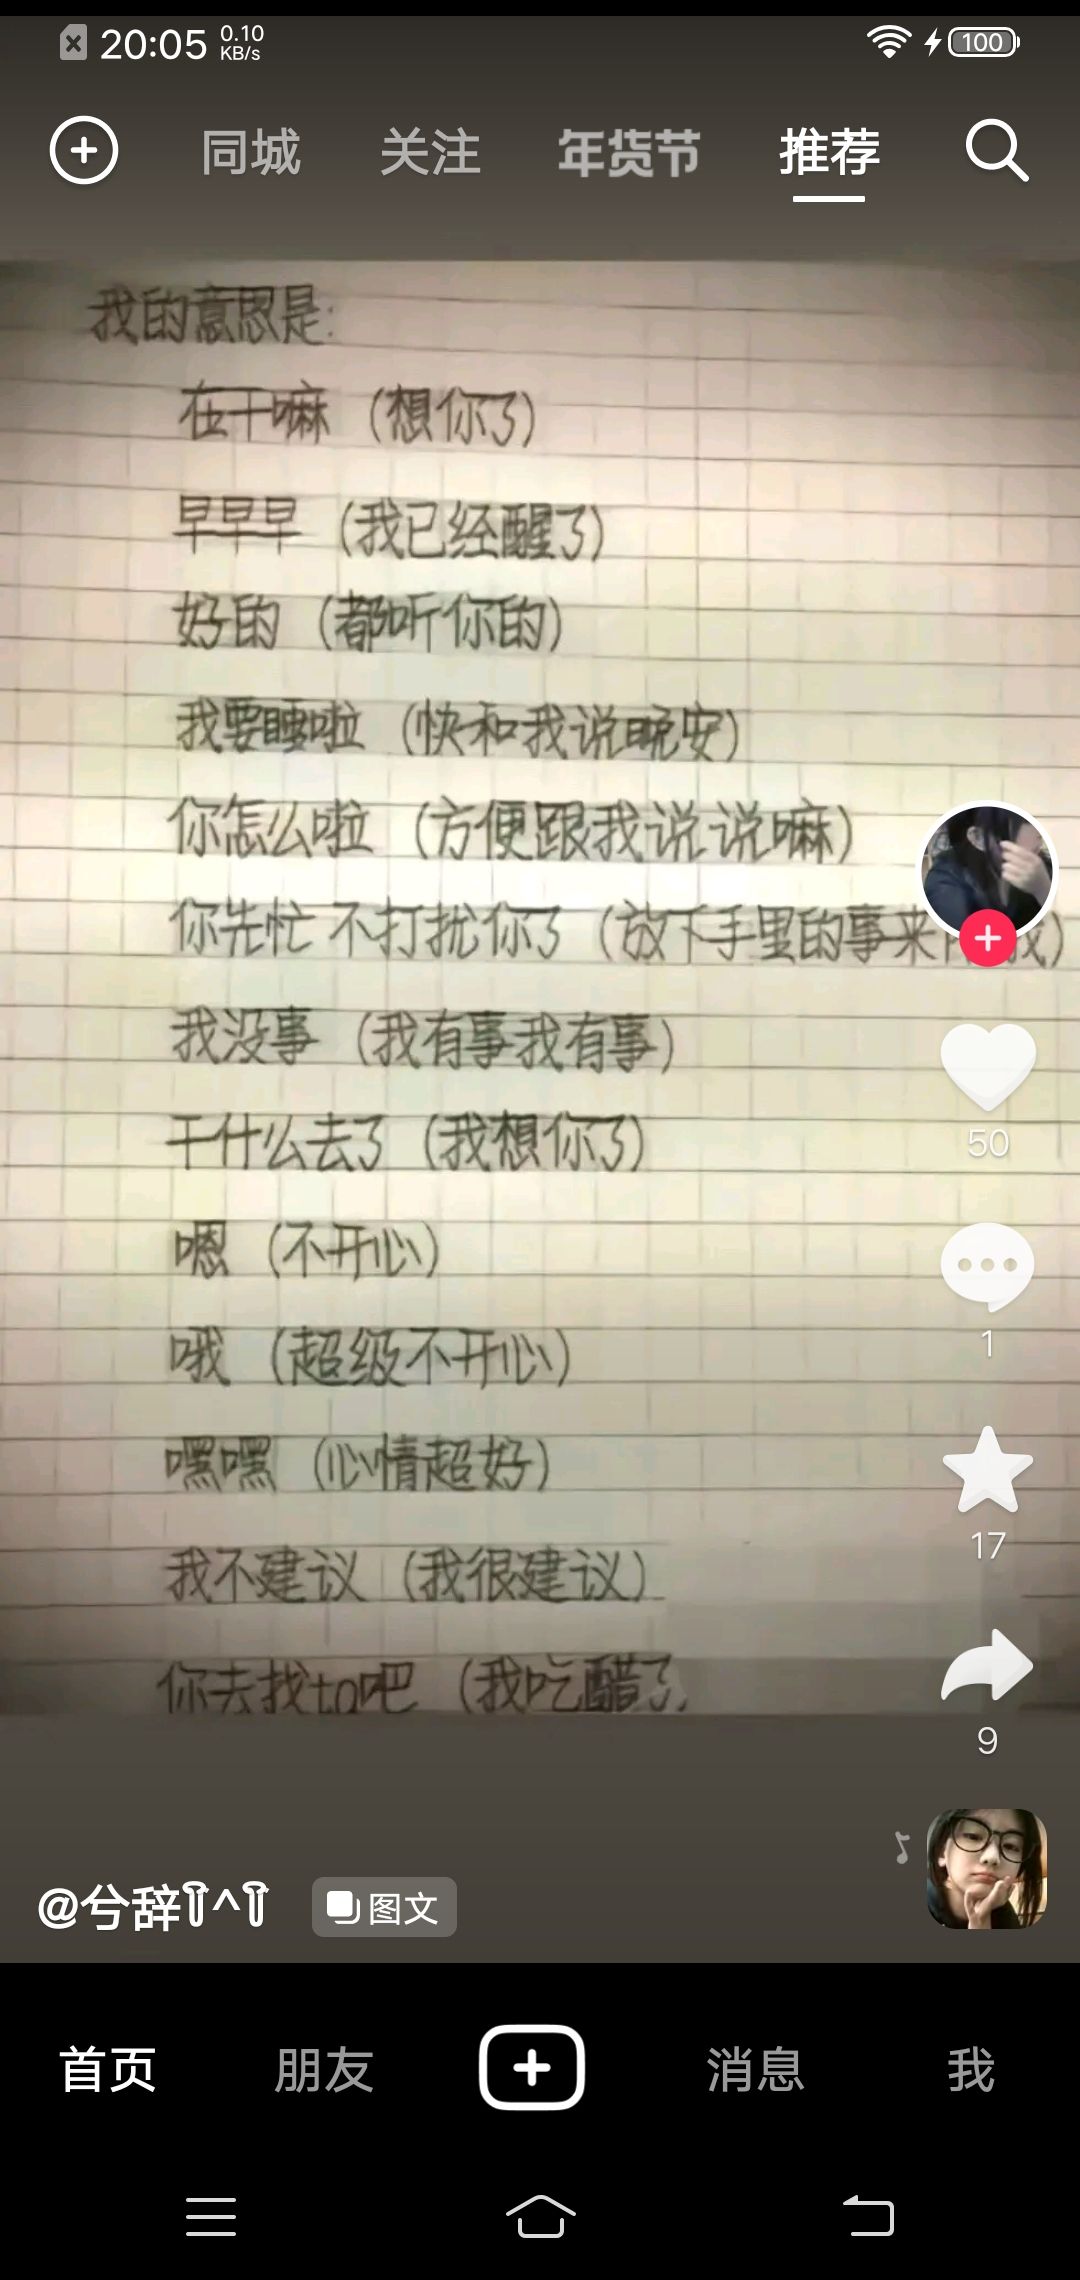 20:05 0.10 KB/s 100
同城 关注 年货节 推荐
我的意思是:
在干嘛 (想你了)
早早早 (我已经醒了)
好的 (都听你的)
我要睡啦 (快和我说晚安)
你怎么啦 (方便跟我说说嘛)
你先忙 不打扰你了 (放下手里的事来 我)
我没事 (我有事我有事)
干什么去了 (我想你了)
嗯 (不开心)
哦 (超级不开心)
嘿嘿 (心情超好)
我不建议 (我很建议)
你去找ta吧 (我吃醋了)
50
1
17
9
@兮辞 图文
首页 朋友 消息 我